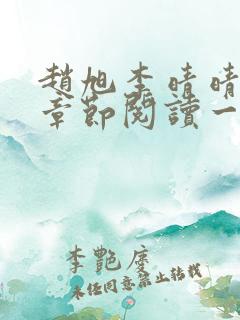 趙旭李晴晴
章節閱讀一
李艷虔
未经同意禁止转载